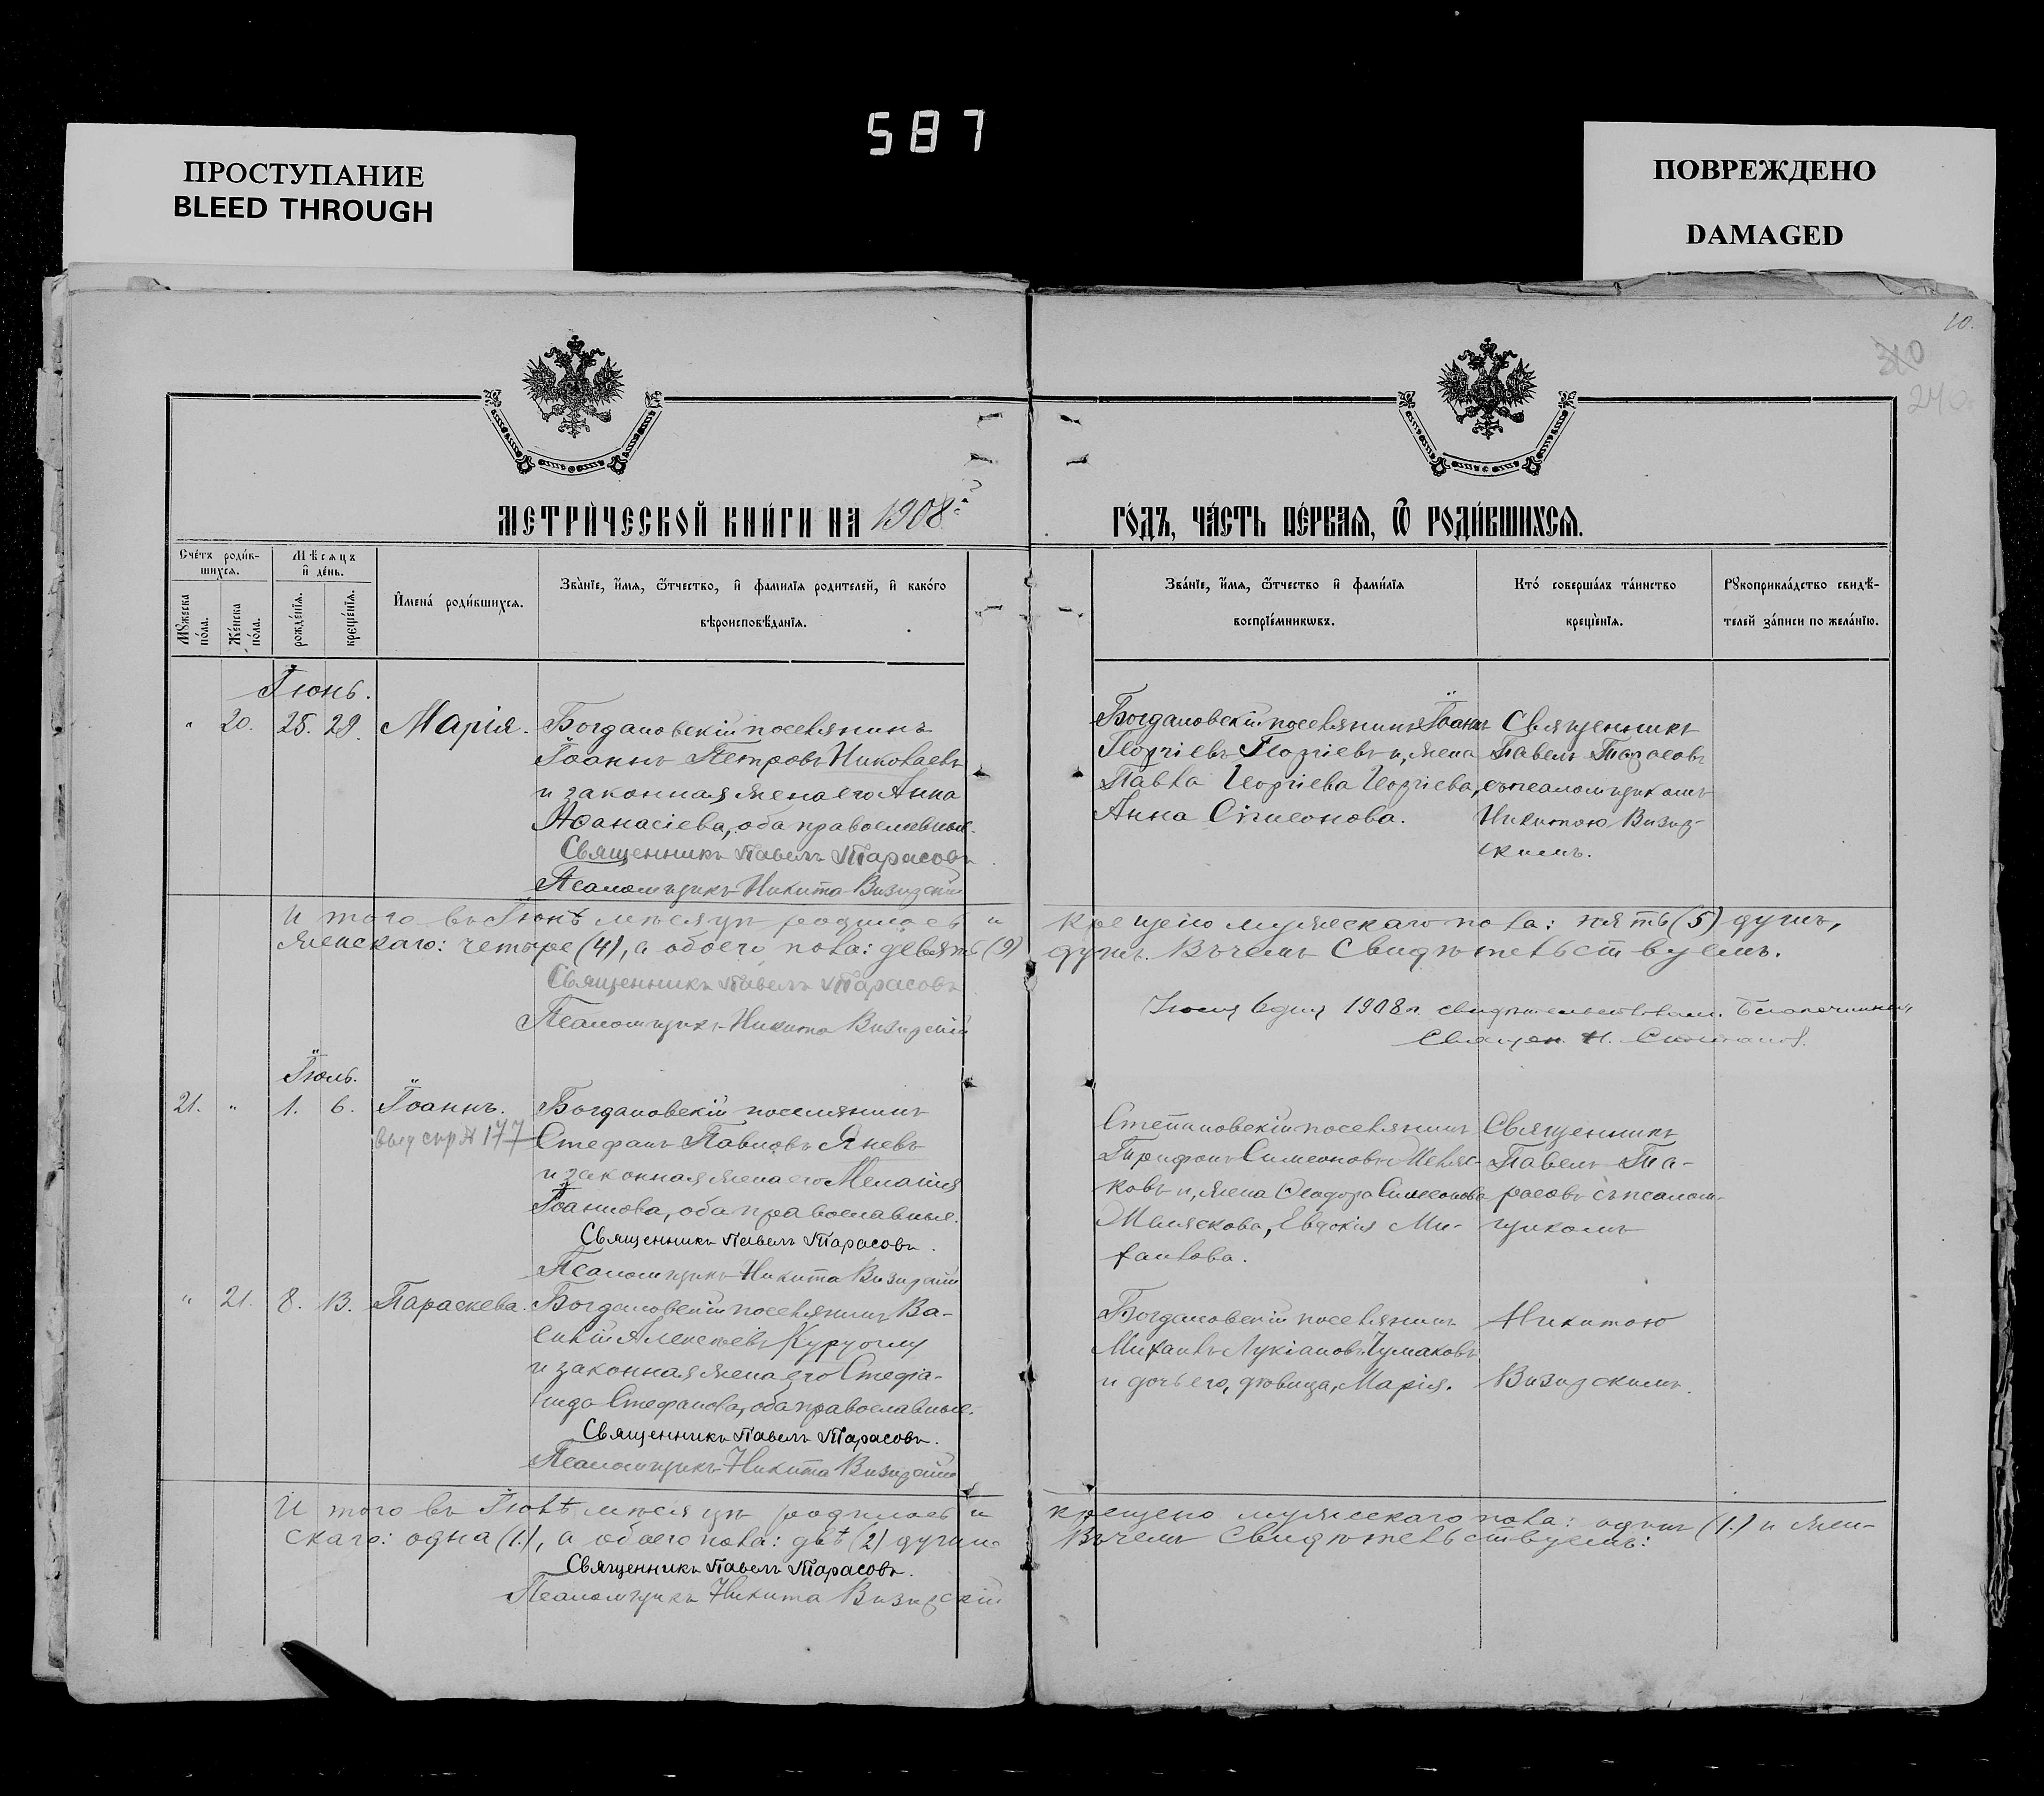 587
ПРОСТУПАНИЕ
BLEED THROUGH
ПОВРЕЖДЕНО
DAMAGED
10.
310
240
МЕТРИ́ЧЕСКОЙ КНИ́ГИ НА 1908
ГО́ДЪ, ЧА́СТЬ ПЕ́РВАѦ, Ѡ РОДИ́ВШИХСѦ.
Сче́тъ роди́в-
шихсѧ.
Мѣсѧцъ
и҆ де́нь.
Мꙋжеска
по́ла.
Же́нска
по́ла.
рожде́нїѧ.
креще́нїѧ.
И҆мена̀ роди́вшихсѧ.
Зва́нїе, и҆́мѧ, ѻ҆́тчество, и҆ фамилїѧ родителей, и҆ како́го
вѣроисповѣ́данїѧ.
Зва́нїе, и҆́мѧ, ѻ҆́тчество и҆ фами́лїѧ
воспрїе́мникѡвъ.
Кто́ соверша́лъ та́инство
креще́нїѧ.
Рꙋкоприкла́дство свидѣ́-
телей за́писи по жела́нїю.
Іюнь.
" 20. 25. 29. Марія.
Богдановскій поселянинъ
Іоаннъ Петровъ Николаевъ
и законная жена его Анна
Аѳанасіева, оба православные.
Священникъ Павелъ Тарасовъ
Псаломщикъ Никита Визирскій
Богдановскій поселянинъ Іоаннъ
Георгіевъ Георгіевъ и, жена
Павла Георгіева Георгіева,
Анна Симеонова.
Священникъ
Павелъ Тарасовъ
съ псаломщикомъ
Никитою Визир-
скимъ.
И того въ Іюнѣ мѣсяцѣ родилось и крещено мужескаго пола: пять (5) душъ,
женскаго: четыре (4), а обоего пола: девять (9) душъ. Въ чемъ свидѣтельствуемъ.
Священникъ Павелъ Тарасовъ
Псаломщикъ Никита Визирскій
Іюля 6 дня 1908 г. свидѣтельствовалъ. Благочинный,
Священ. Н.
Іюль.
21. " 1. 6. Іоаннъ.
выд спр № 177
Богдановскій поселянинъ
Стефанъ Павловъ Яневъ
и законная жена его Меланія
Іоаннова, оба православные.
Священникъ Павелъ Тарасовъ.
Псаломщикъ Никита Визирскій
Степановскій поселянинъ
Трифонъ Симеоновъ Меляс-
ковъ и, жена Ѳеодора Симеонова
Меляскова, Евдокія Ми-
хаилова.
Священникъ
Павелъ Та-
расовъ съ псалом-
щикомъ
" 21. 8. 13. Параскева.
Богдановскій поселянинъ Ва-
силій Алексѣевъ Куруоглу
и законная жена его Стефа-
нида Стефанова, оба православные.
Священникъ Павелъ Тарасовъ.
Псаломщикъ Никита Визирскій
Богдановскій поселянинъ
Михаилъ Лукіановъ Чумаковъ
и дочь его, дѣвица, Марія.
Никитою
Визирскимъ.
И того въ Іюлѣ мѣсяцѣ родилось и крещено мужескаго пола: одинъ (1.) и жен-
скаго: одна (1.), а обоего пола: двѣ (2) души. Въ чемъ свидѣтельствуемъ:
Священникъ Павелъ Тарасовъ.
Псаломщикъ Никита Визирскій